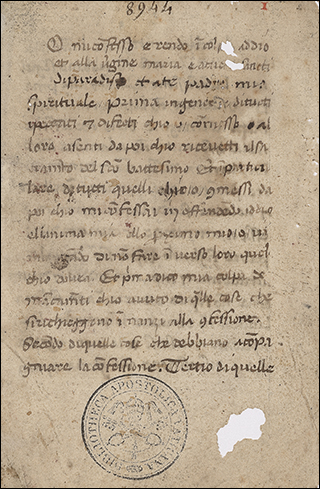 8944
1
O mi cōfesso e rendo ī col a addio
et alla ugine maria e a tucti sancti
di paradiso et a te padre mio
spirituale. Prima in gene de di tucti
i peccati et difecti chio o cōmesso
loro asenti da poi chio ricevetti
mento del sco battesimo Et ī parti
lare di tucti quelli chio o 9messi da
poi chio mi cōfessai offendendo idio
ellanima mia ello proximo mio
di nō fare ī verso loro quel
chio dovea. Et pma dico mia colpa de
mācamēti chio avuto di qlle cose che
si richieggono ī nanzi alla 9fessione.
Secōdo di quelle cose che debbiano acōpa
gniare la cōfessione. Tertio di quelle
BIBLIOTHECA APOSTOLICA VATICANA